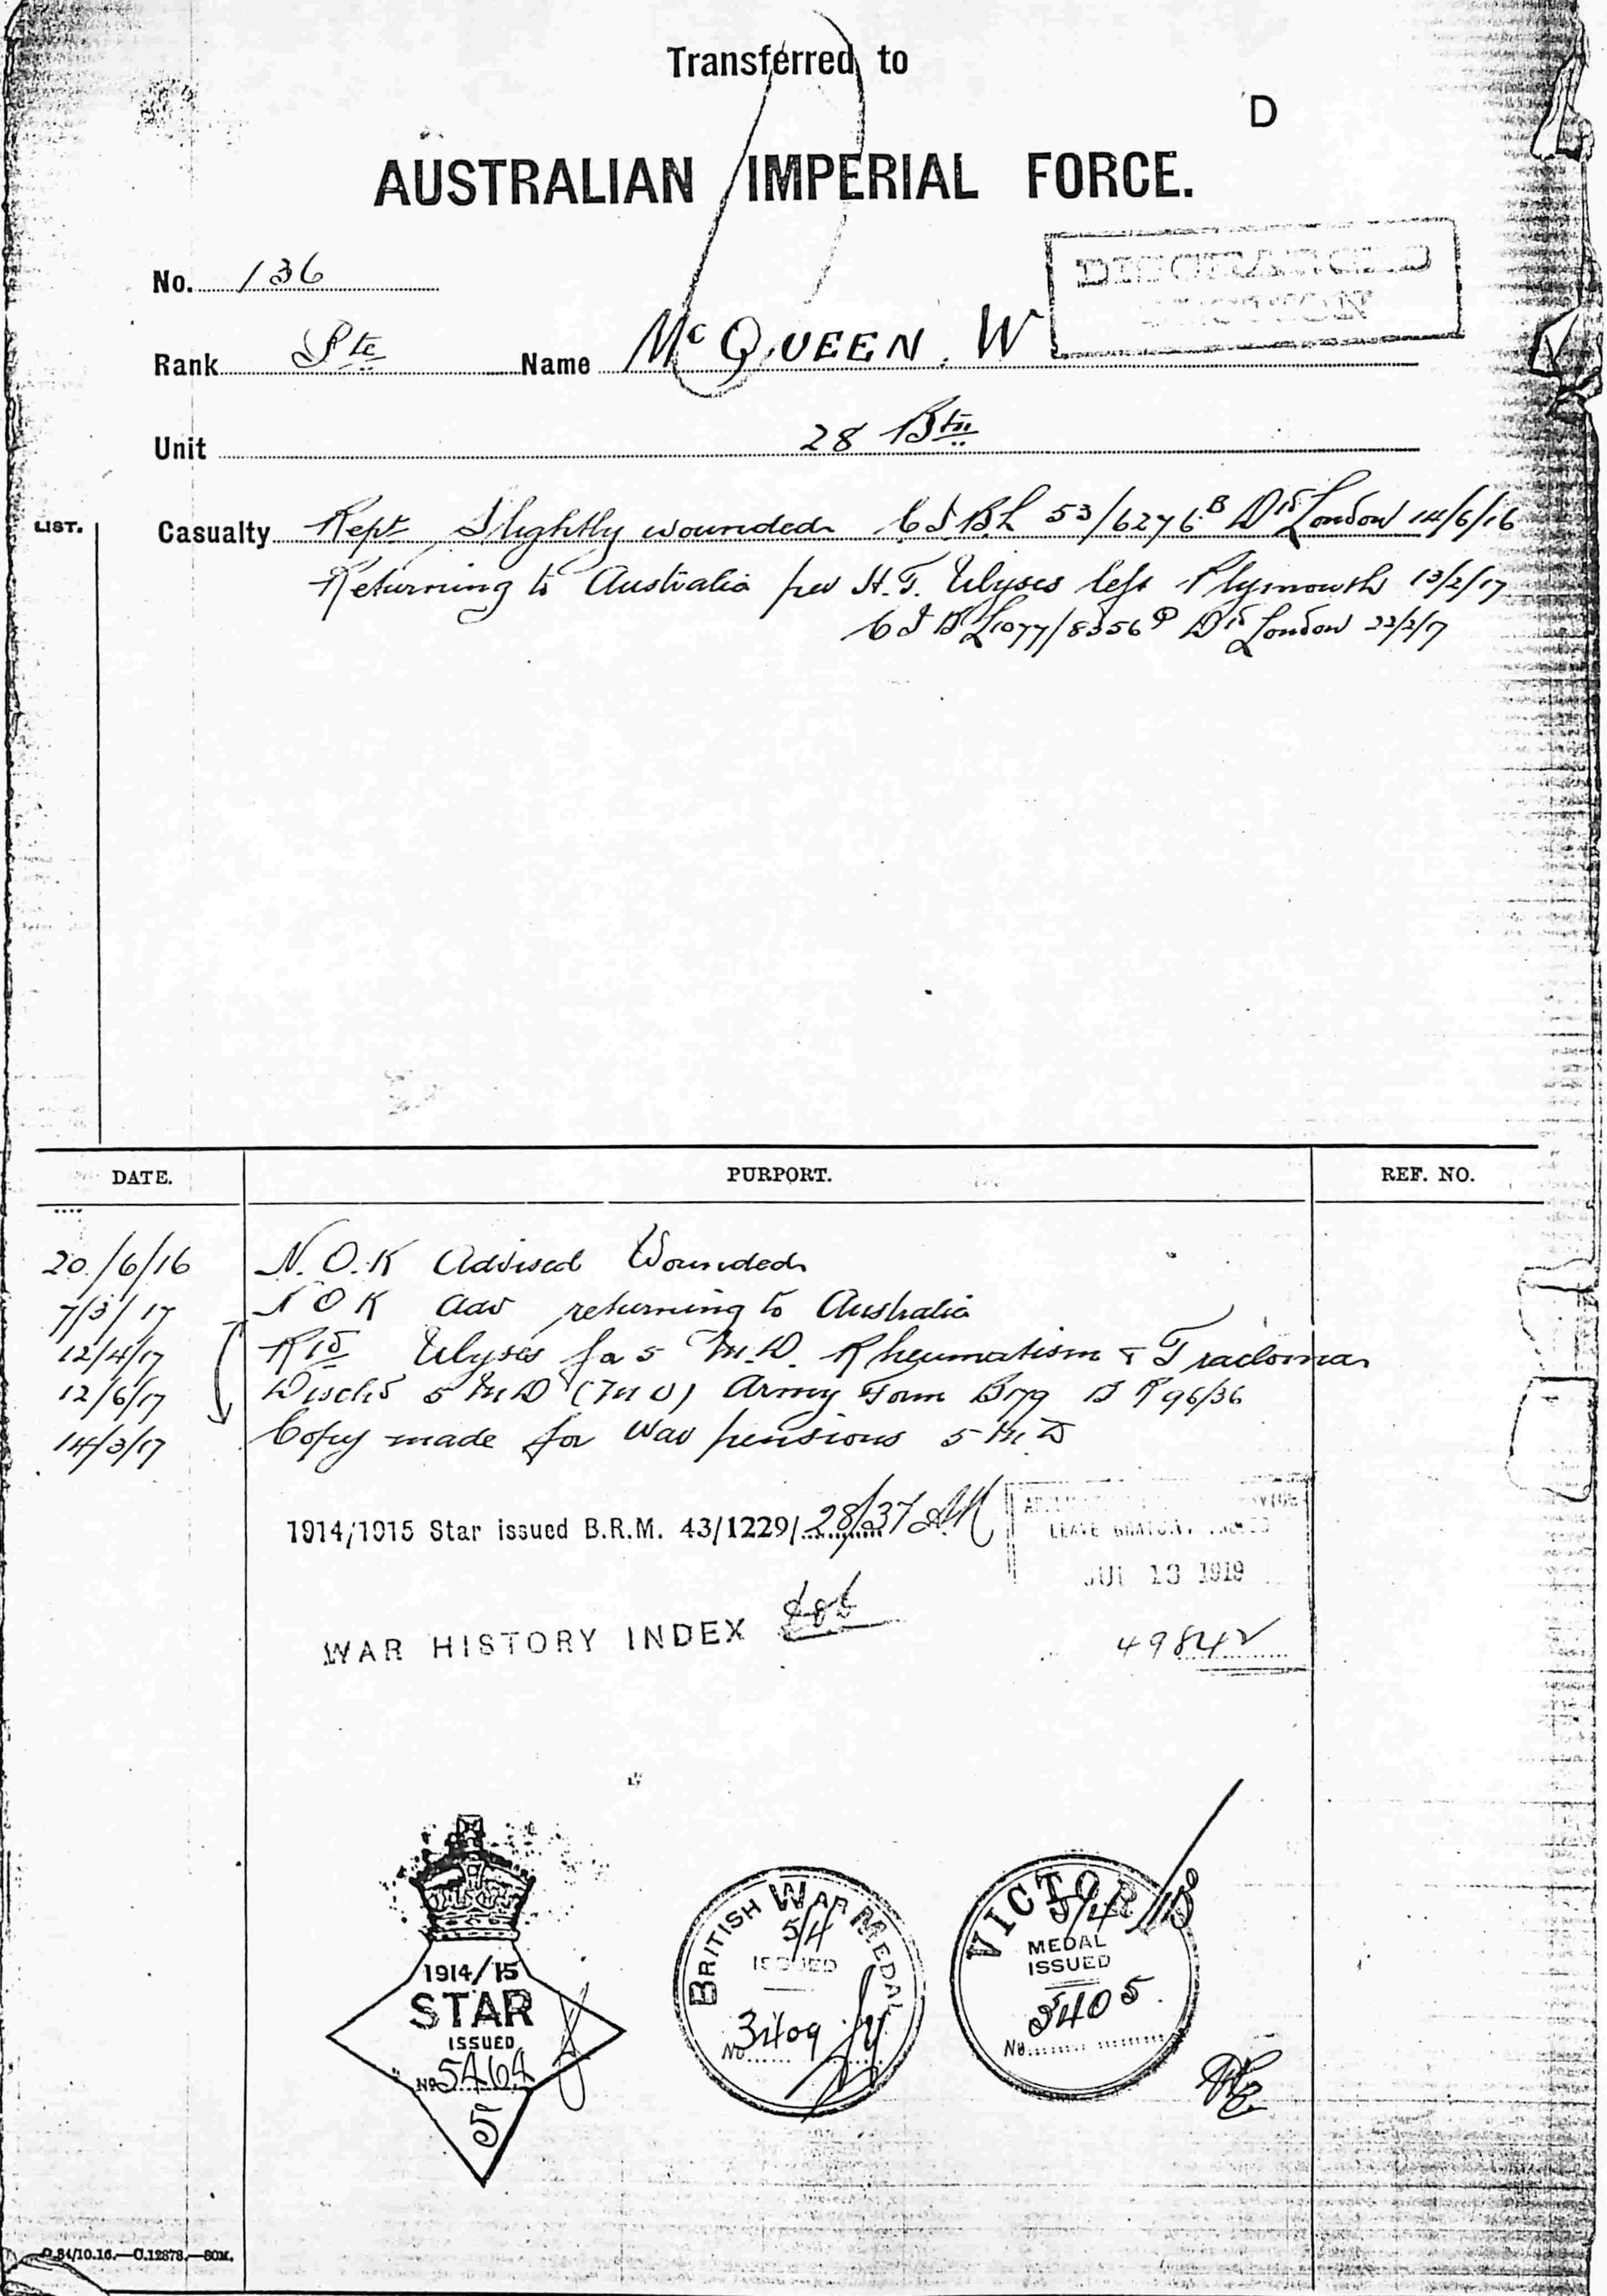 Transferred to
D
AUSTRALIAN IMPERIAL FORCE.
No. 136
Rank Pte Name McQUEEN. W
Unit 28 Btn
LIST.
Casualty Rept Slightly wounded C I B L 53/6276 B Dd London 14/6/16
Returning to Australia per H.T. Ulyses left Plymouth 13/2/17
C I B L 1077/8356 Dd London 22/2/17
DATE. PURPORT. REF. NO.
20/6/16 N.O.K Advised Wounded
7/3/17 N O K adv returning to Australia
12/4/17 Rtd Ulyses for 5 M.D. Rheumatism & Tracloma
12/6/17 Dischd 5 M D (M U) Army Form B179 B R 96/36
14/3/17 Copy made for War pensions 5 M D
1914/1915 Star issued B.R.M. 43/1229/28/37
LEAVE
JUL 13 1919
WAR HISTORY INDEX
49842
1914/15
STAR
ISSUED
No 5464
5
BRITISH WAR MEDAL
5/4
ISSUED
No 3409
VICTOR
5/4
MEDAL
ISSUED
No. 3405
84/10.16.—C.12878.—50M.